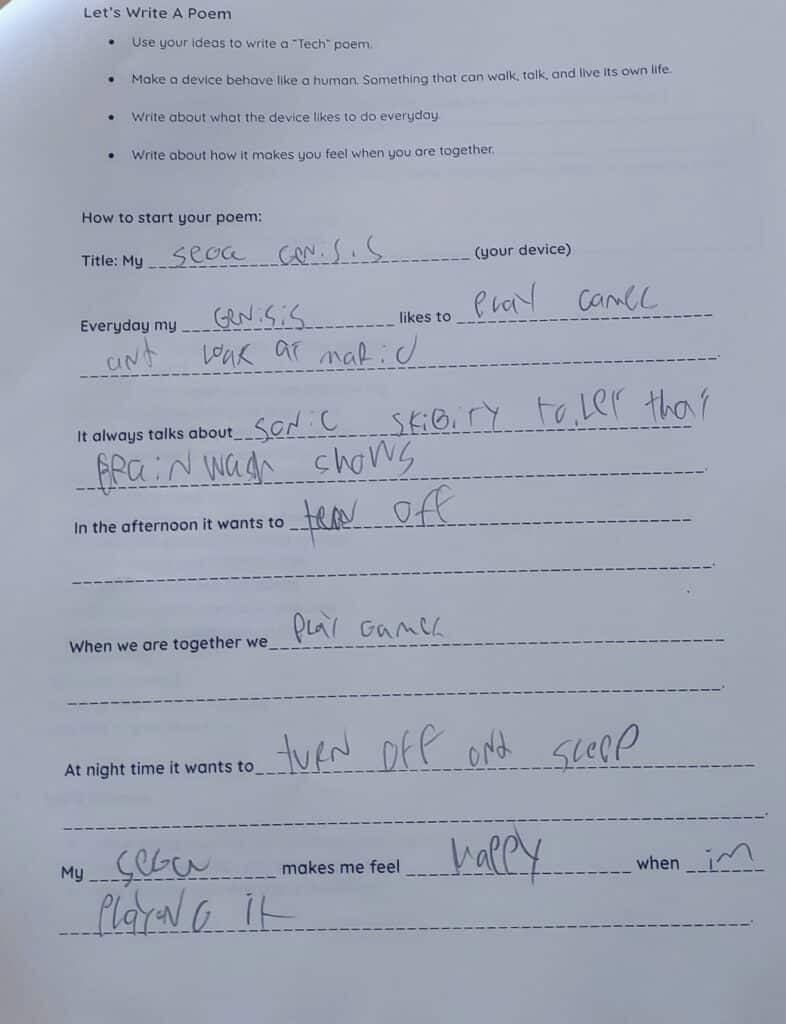 Let's Write A Poem
• Use your ideas to write a "Tech" poem.
• Make a device behave like a human. Something that can walk, talk, and live its own life.
• Write about what the device likes to do everyday.
• Write about how it makes you feel when you are together.
How to start your poem:
Title: My sega GeNiSiS (your device)
Everyday my GeNiSiS likes to PLAY Games
and look at
It always talks about SONiC SKiBiTY toiLer that
BRaiNwash shows
In the afternoon it wants to off
When we are together we PLAY Games
At night time it wants to tuRN OFF and SLeeP
My Sega makes me feel HaPPy when im
PlayiNG it